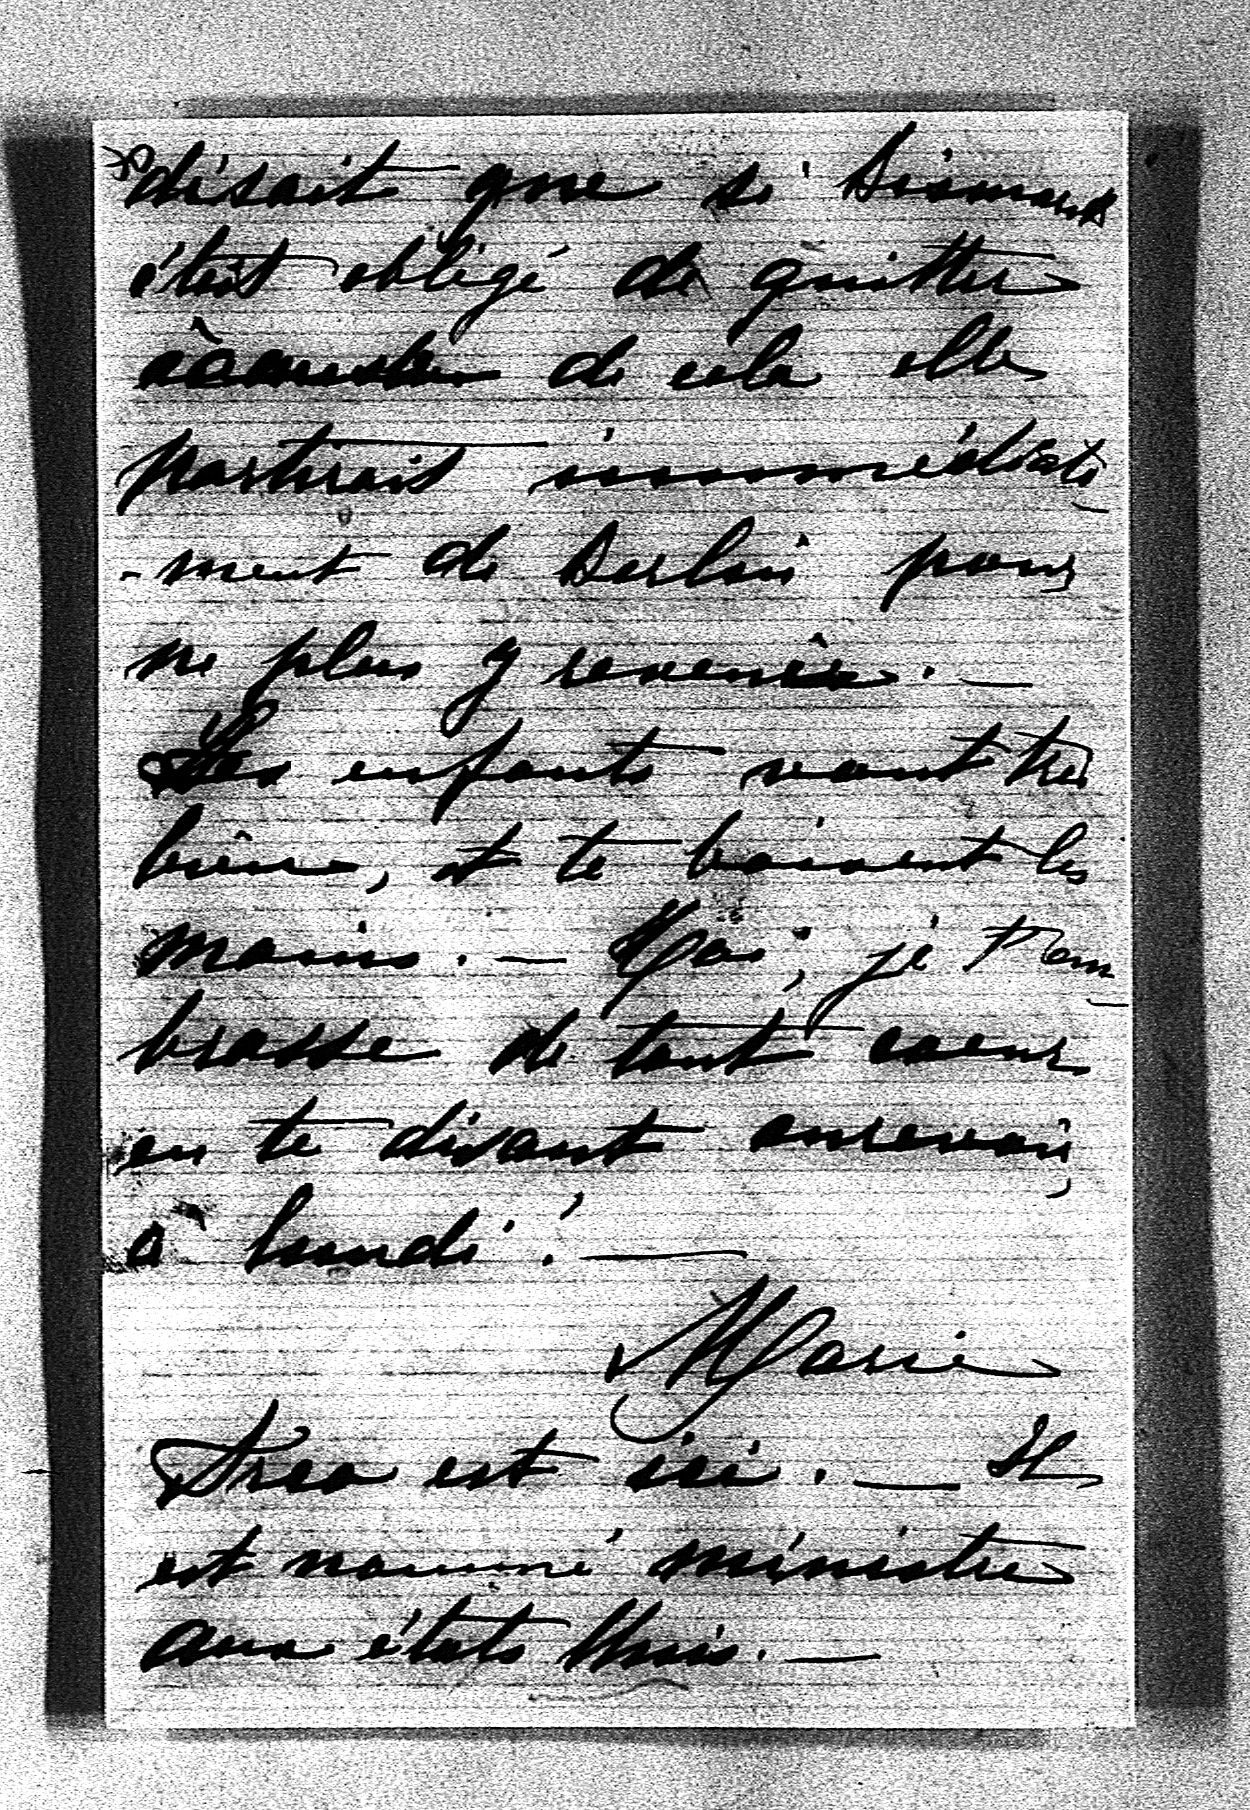 disait que si Bismark
était obligé de quitter
à cause de cela elle
partirait immédiate
-ment de Berlin pour
ne plus y revenir. —
Les enfants vont très
bien, et te baisent les
mains. — Moi, je t'em
brasse de tout coeur
en te disant aurevoir,
à lundi! —
Marie
est ici. — Il
est nommé ministre
aux états Unis. —